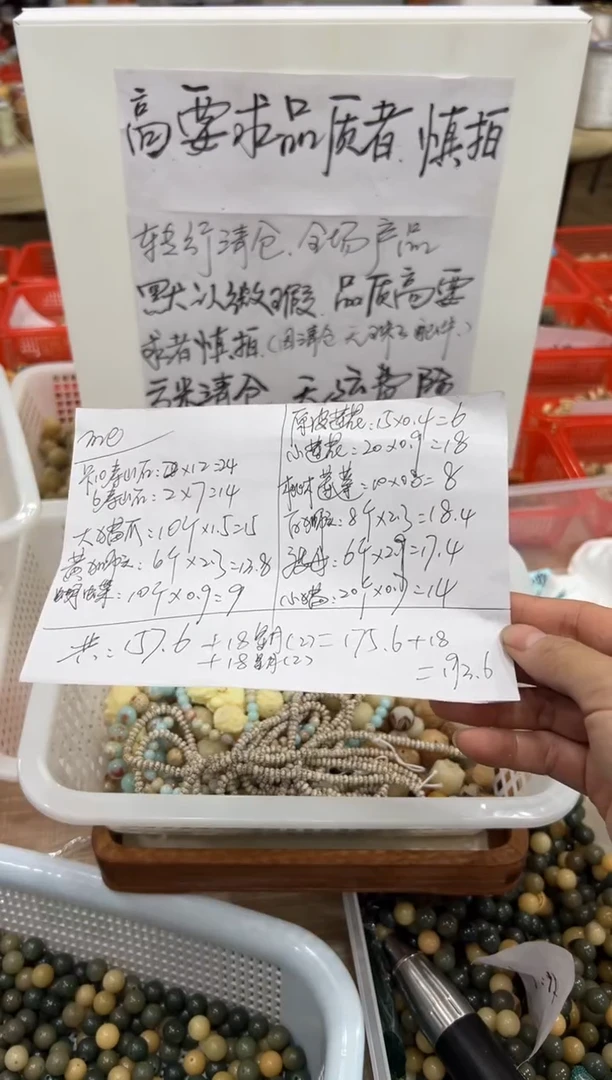 高要求品质者.慎拍
转行清仓.全场产品
默认微瑕.品质高要
求者慎拍.(因清仓 无 配件.)
清仓 无运费险
寿山石:2×12=24
6寿山石:2×7=14
大猫爪:10个×1.5=15
黄 :6个×2.3=13.8
:10个×0.9=9
原皮莲花:15×0.4=6
小莲花:20×0.9=18
莲蓬:10×0.8=8
白 :8个×2.3=18.4
:6个×2.9=17.4
小猫:20个×0.7=14
共:157.6+18 (2)=175.6+18
+18 (2) =193.6